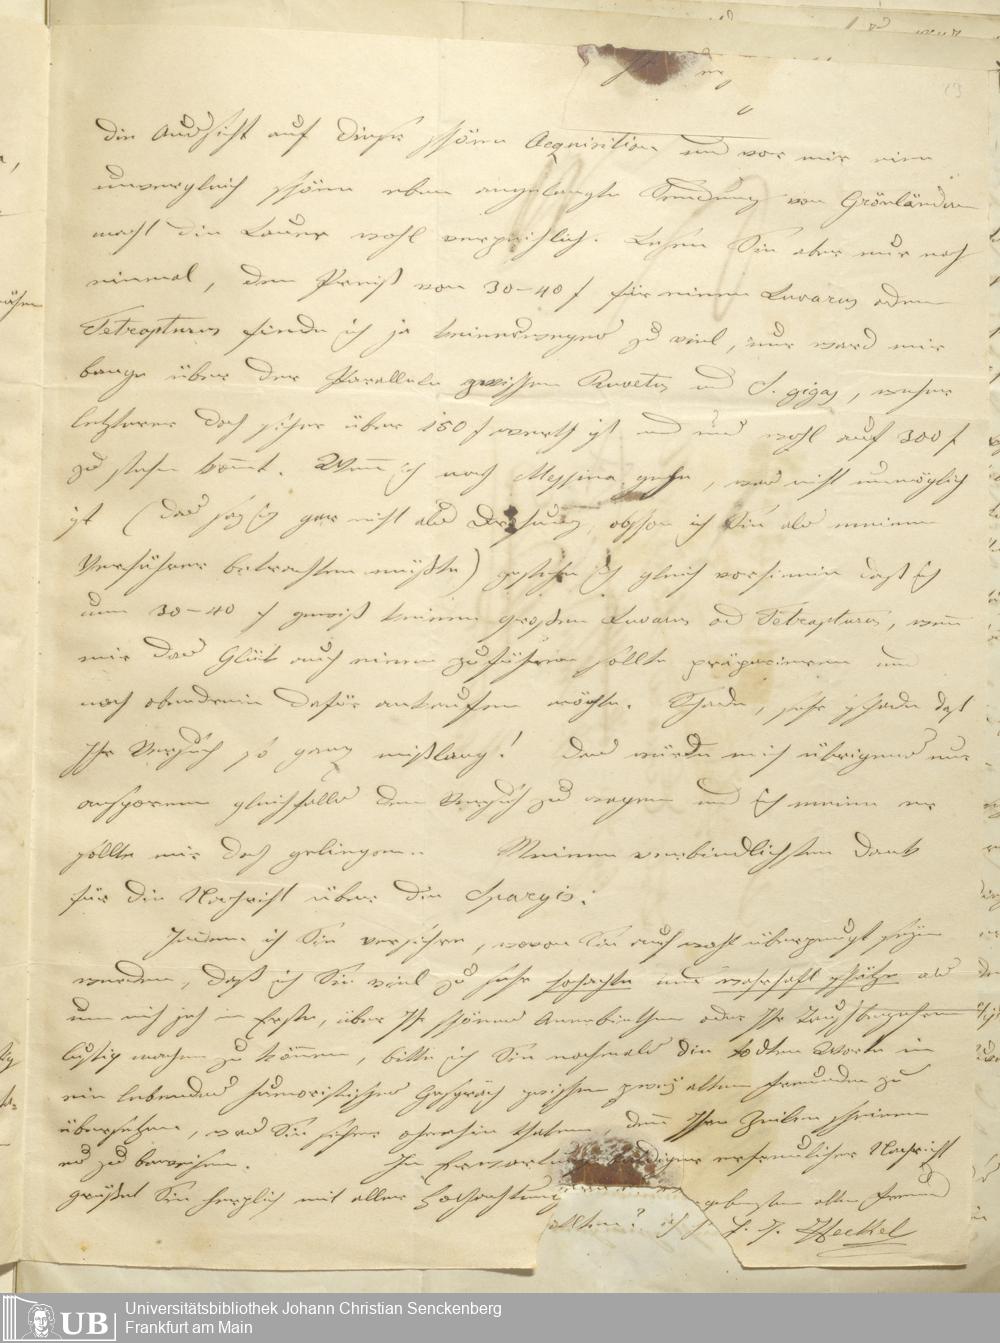 die Aussicht auf diese schöne Acquisition und vor mir eine
unvergleich schöne eben angelangte Sendung von Grönländern
macht die Lauer wohl verzeihlich. Lesen Sie aber nur noch
einmal, den Preiß von 30–40 f für einen Luvarus oder
Tetrapturus finde ich ja keineswegs zu viel, nur ward mir
bange über der Parallele zwischen Ruvetus und S. gigas, wovon
letzterer doch sicher über 150 f werth ist und uns wohl auf 300 f
zu stehen kömmt. Wenn ich nach Messina gehe, was nicht unmöglich
ist (das sag ich gar nicht als Drohung, obschon ich Sie als meinen
Verführer betrachten müßte) gestehe ich gleich vorhinein daß ich
um 30–40 f gewiß keinen großen Luvarus od Tetrapturus, wenn
mir das Glük auch einen zuführen sollte präpariren und
noch obendrein dafür ankaufen möchte. Schade, sehr schade daß
Ihr Versuch so ganz mißlang! Das würde mich übrigens nur
anspornen gleichfalls den Versuch zu wagen und ich meine er
sollte mir doch gelingen. Meinen verbindlichsten Dank
für die Nachricht über die Spargis.
Indem ich Sie versichere, wovon Sie auch wohl überzeugt seyn
werden, daß ich Sie viel zu sehr hochachte und wahrhaft schätze als
um mich je im Ernste, über Ihr schönes Anerbiethen oder Ihr Tauschbegehren
lustig machen zu können, bitte ich Sie nochmals die todten Worte in
ein lebendes humoristisches Gespräch zwischen zwey alten Freunden zu
übersetzen, was Sie sicher ohnehin thaten denn Ihre Zeilen scheinen
es zu beweisen. In Erwartung baldiger erfreulicher Nachricht
grüßet Sie herzlich mit aller Hochachtung gebenster alter Freund
J. J. Heckel
Universitätsbibliothek Johann Christian Senckenberg
Frankfurt am Main
UB